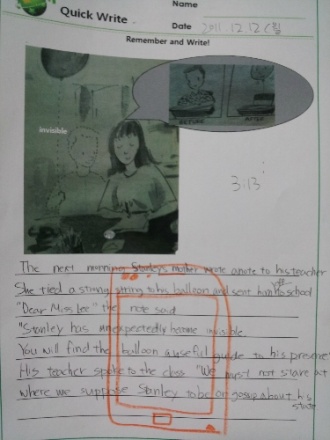 Quick Write
Name
Date 2011.12.12(월)
Remember and Write!
BEFORE
AFTER
invisible
3:13
The next morning Stanley's mother wrote a note to his teacher
She tied a strong string to his balloon and sent him to school
"Dear Miss Lee" the note said
"Stanley has unexpectedly become invisible
You will find the balloon a useful guide to his presence
His teacher spoke to the class "We must not stare at
where we suppose Stanley to be or gossip about his
state